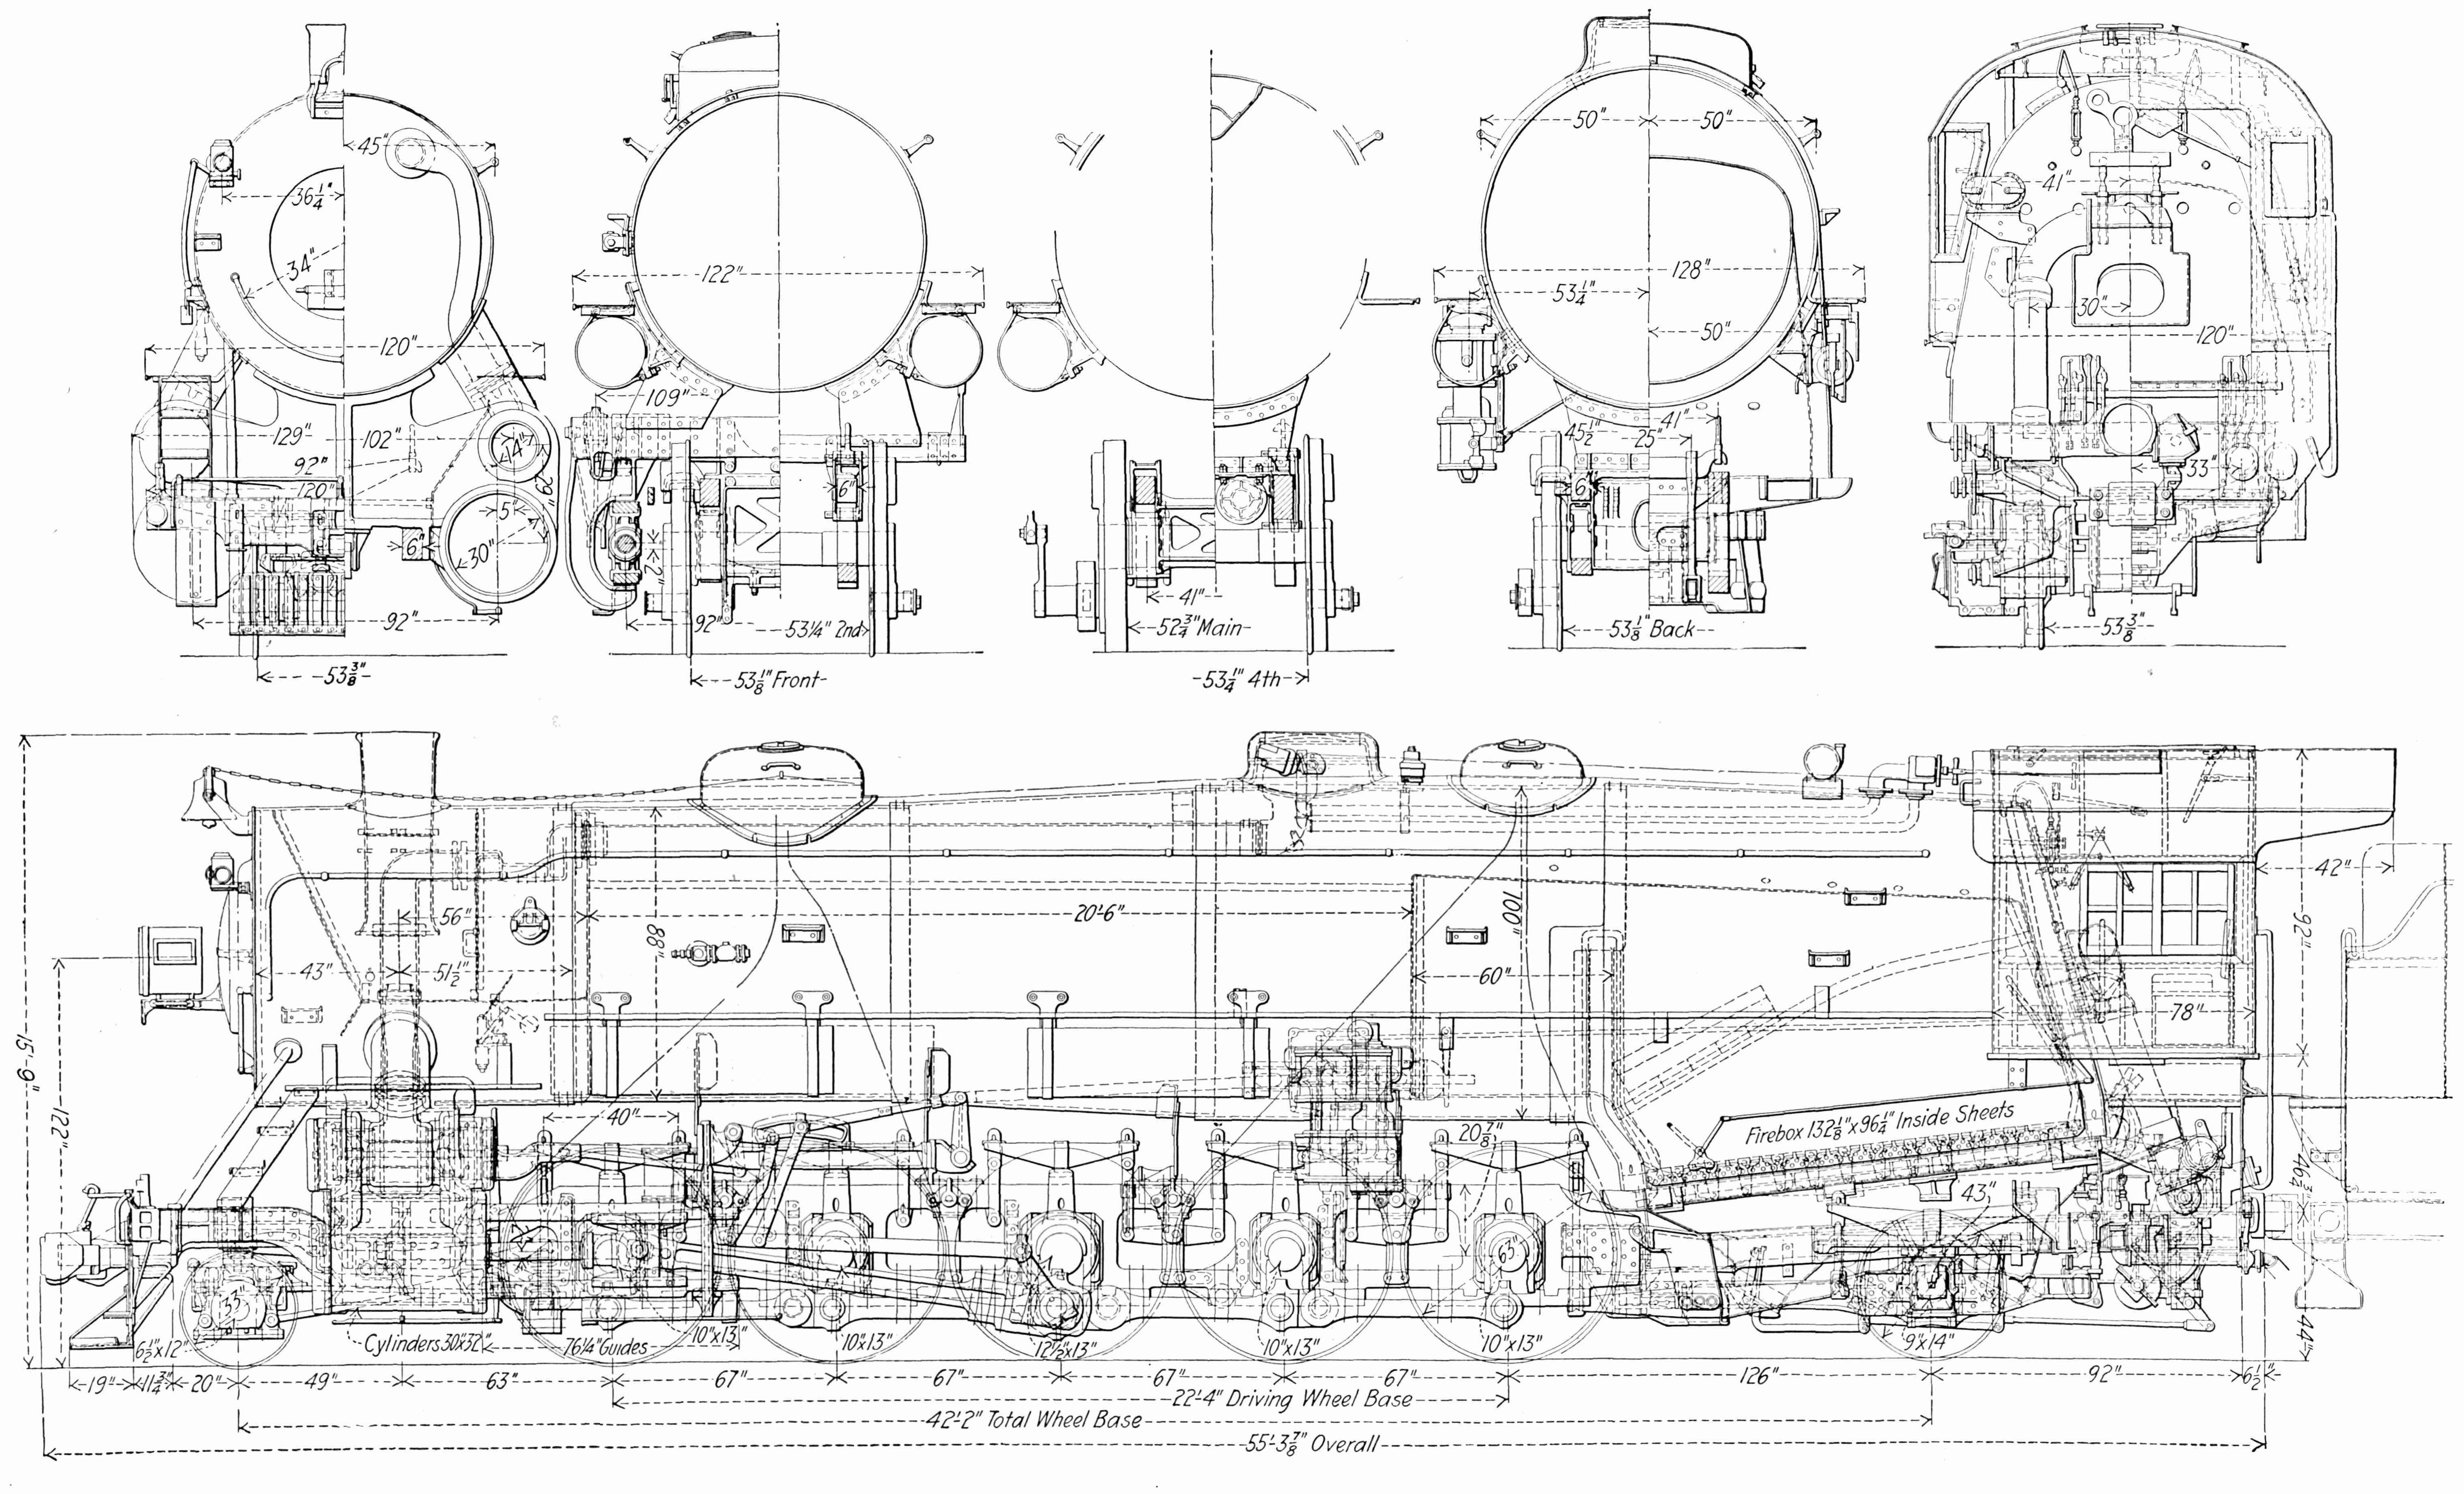 45"
36¼"
34"
120"
129"
102"
92"
120"
14"
29"
5"
30"
6"
92"
53⅜"
122"
109"
6"
2"
92"
53¼" 2nd
53⅛" Front
41"
52¾" Main
53¼" 4th
50" 50"
128"
53¼"
50"
41"
45½"
25"
6"
53⅛" Back
41"
30"
120"
33"
53⅜"
15'-9"
122"
56"
43"
51½"
88"
20'-6"
100"
60"
42"
92"
78"
40"
20⅞"
Firebox 132⅛" x 96¼" Inside Sheets
46¾"
43"
33"
63"
44"
6½" x 12"
Cylinders 30" x 32"
76¼" Guides
10" x 13"
10" x 13"
12½" x 13"
10" x 13"
10" x 13"
9" x 14"
19" 11¾" 20" 49" 63" 67" 67" 67" 67" 126" 92" 6½"
22'-4" Driving Wheel Base
42'-2" Total Wheel Base
55'-3⅞" Overall